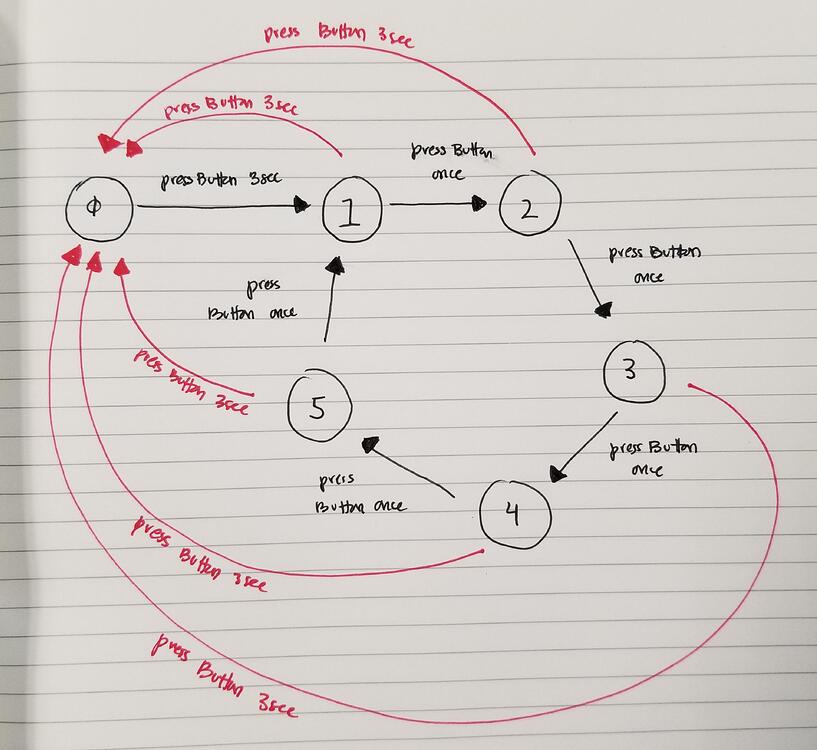 press Button 3sec
press Button 3sec
press Button
once
press Button 3sec
0
1
2
press Button
once
press
Button once
3
press Button 3sec
5
press Button
once
press
Button once
4
press Button 3sec
press Button 3sec